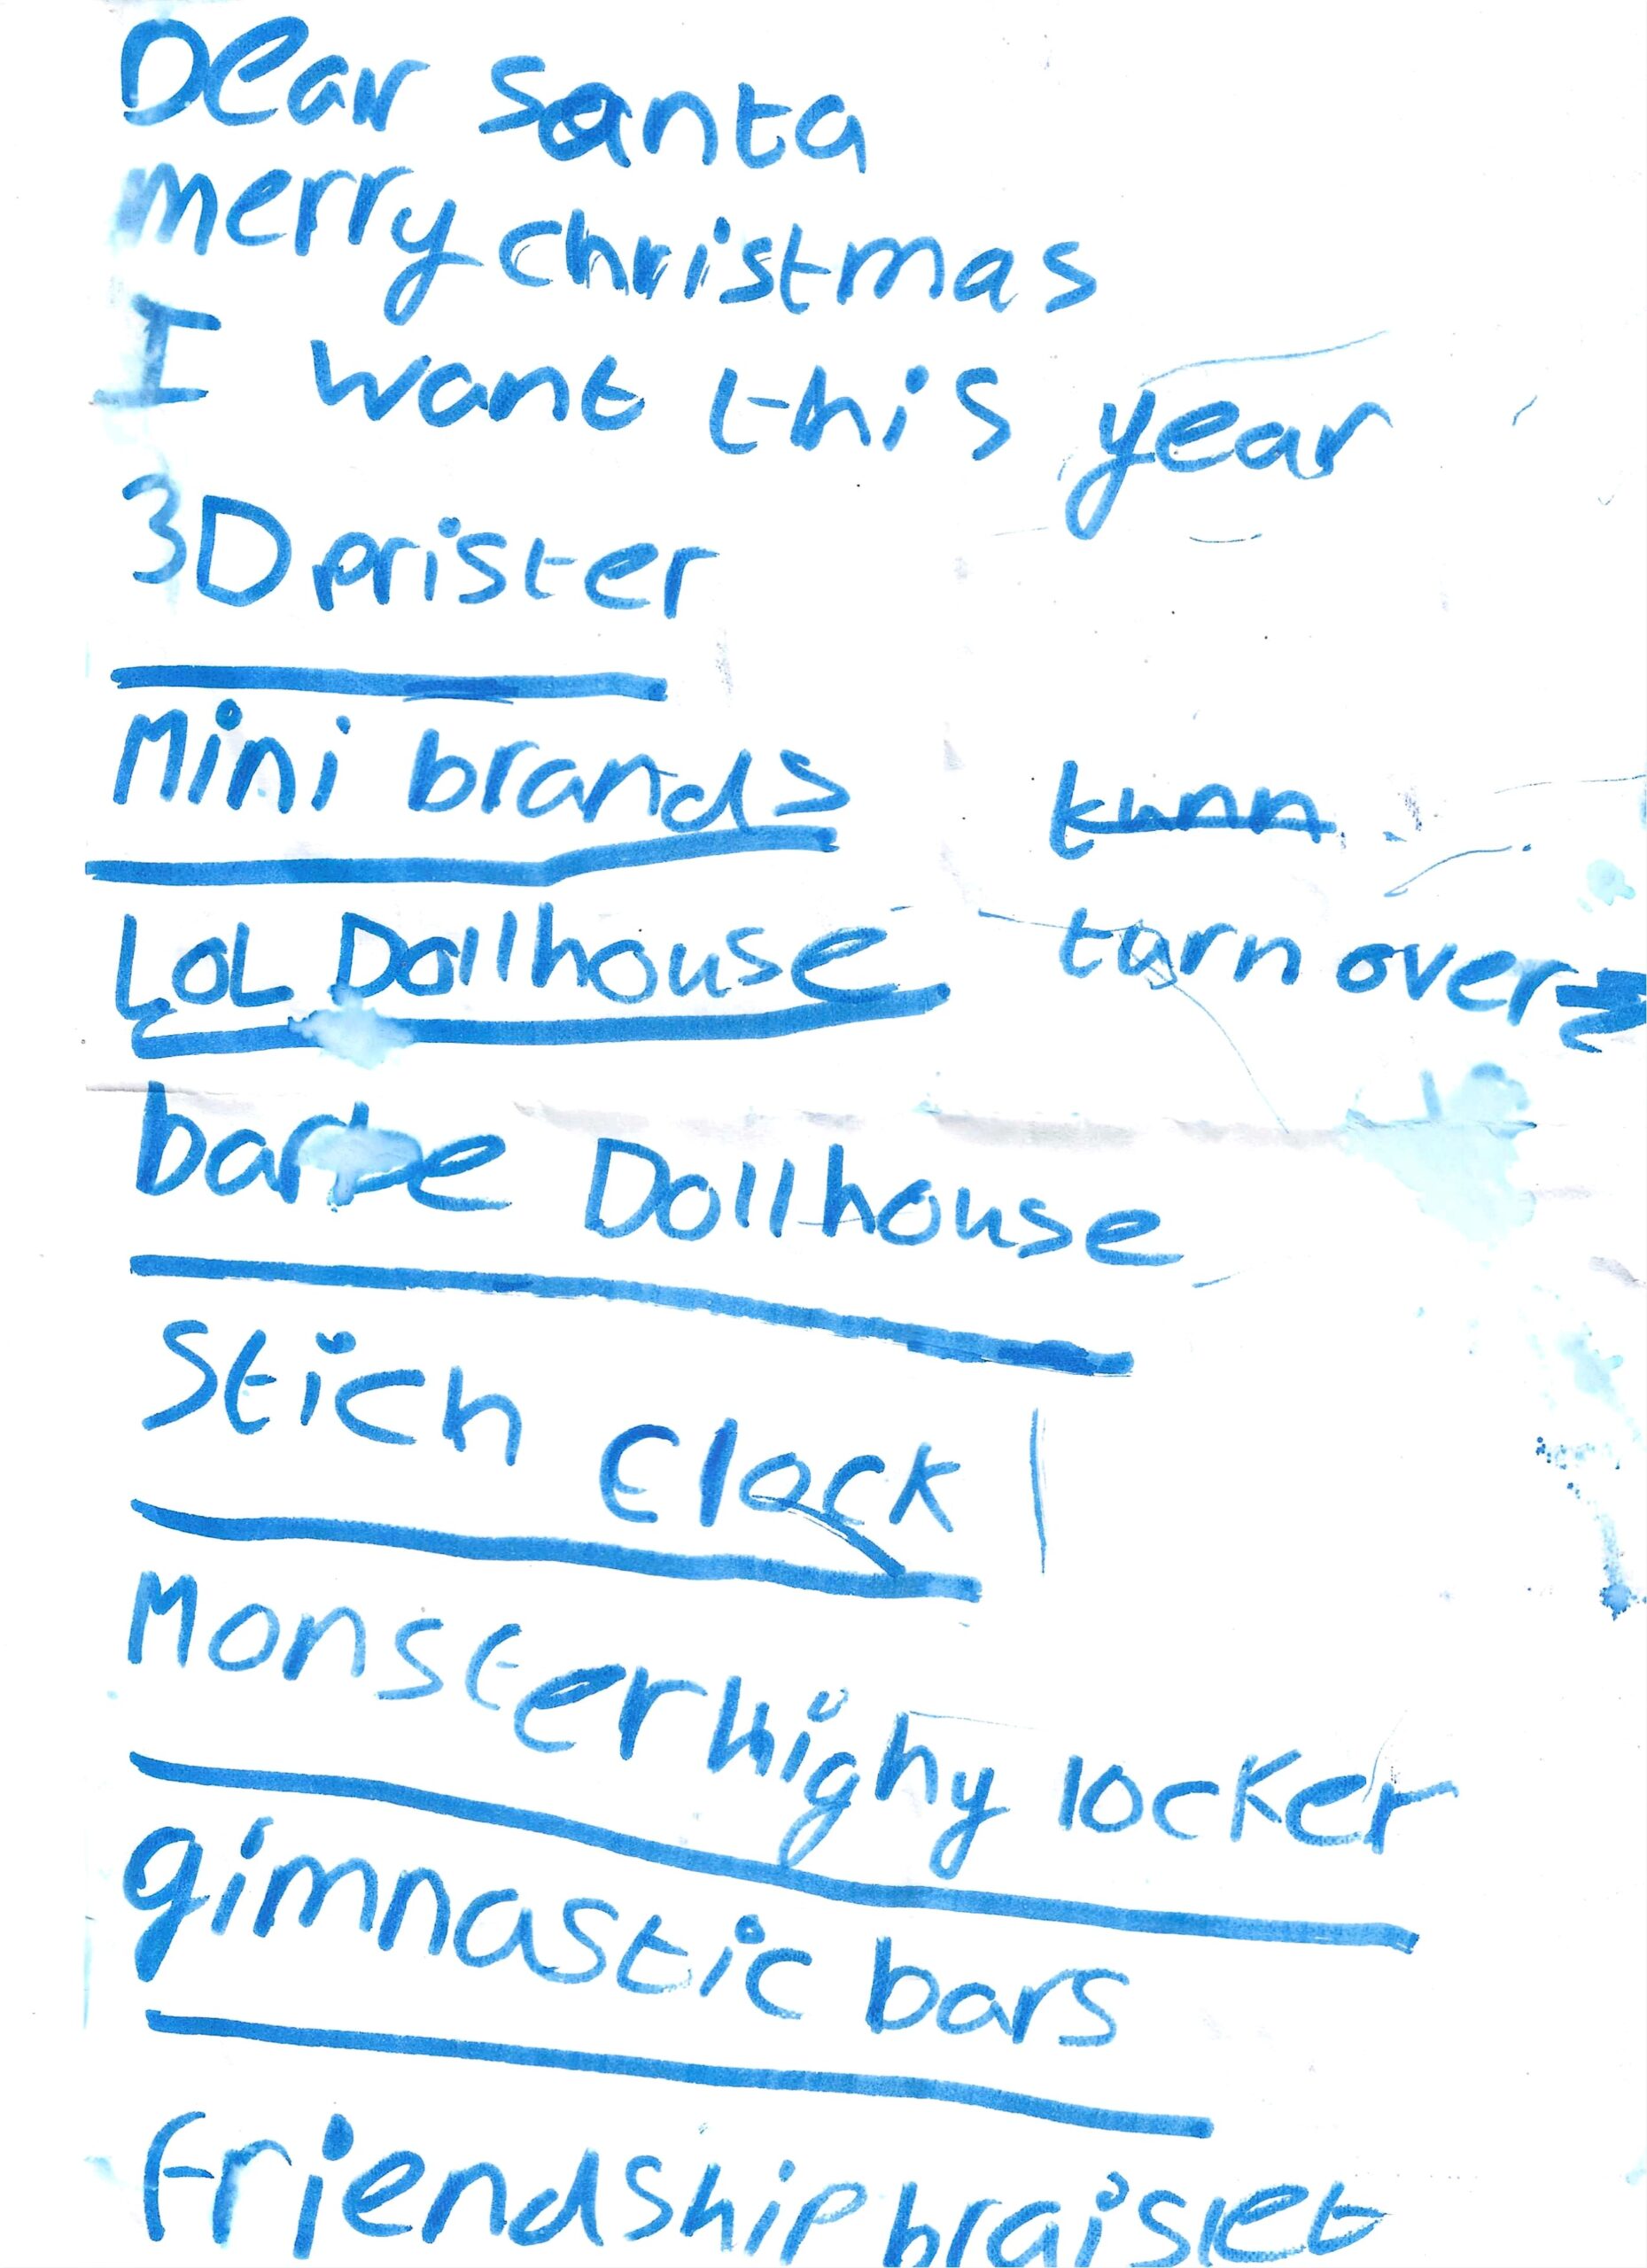 Dear santa
merry christmas
I want this year
3D prister
Mini brands
LOL Dollhouse
turn over
barbe Dollhouse
Stich Clock
Monster highy locker
gimnastic bars
friendship braislet